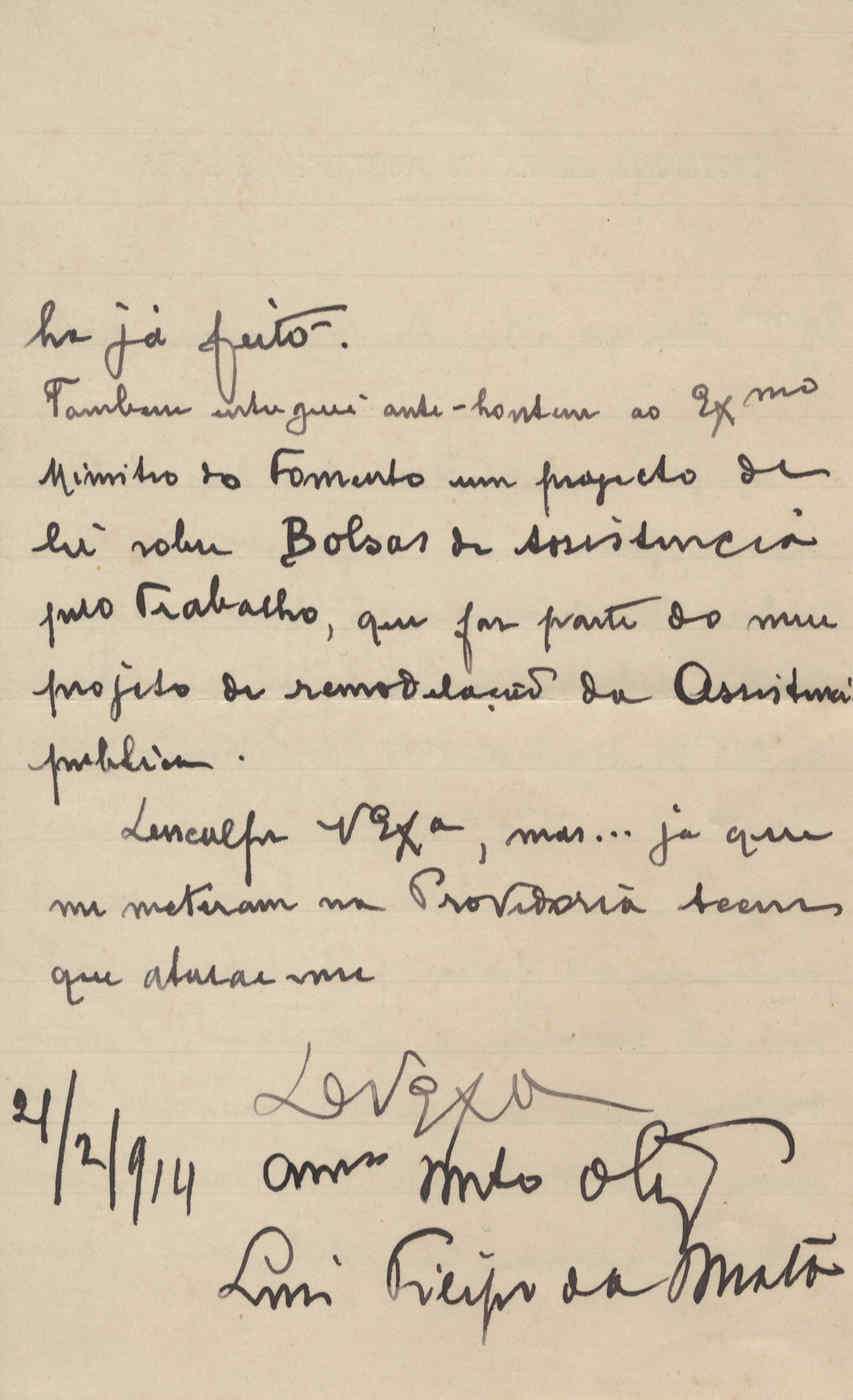 ha já feito.
Tambem entreguei ante-hontem ao Exmo
Ministro do Fomento um projecto de
lei sobre Bolsas de Assistencia
pelo Trabalho, que faz parte do meu
projeto de remodelação da Assistencia
publica.
Desculpe V Exa, mas... ja que
me meteram na Provedoria teem
que aturar-me
De V Exa
21/2/914 Amo muto obg
Luis Filipe da Mata